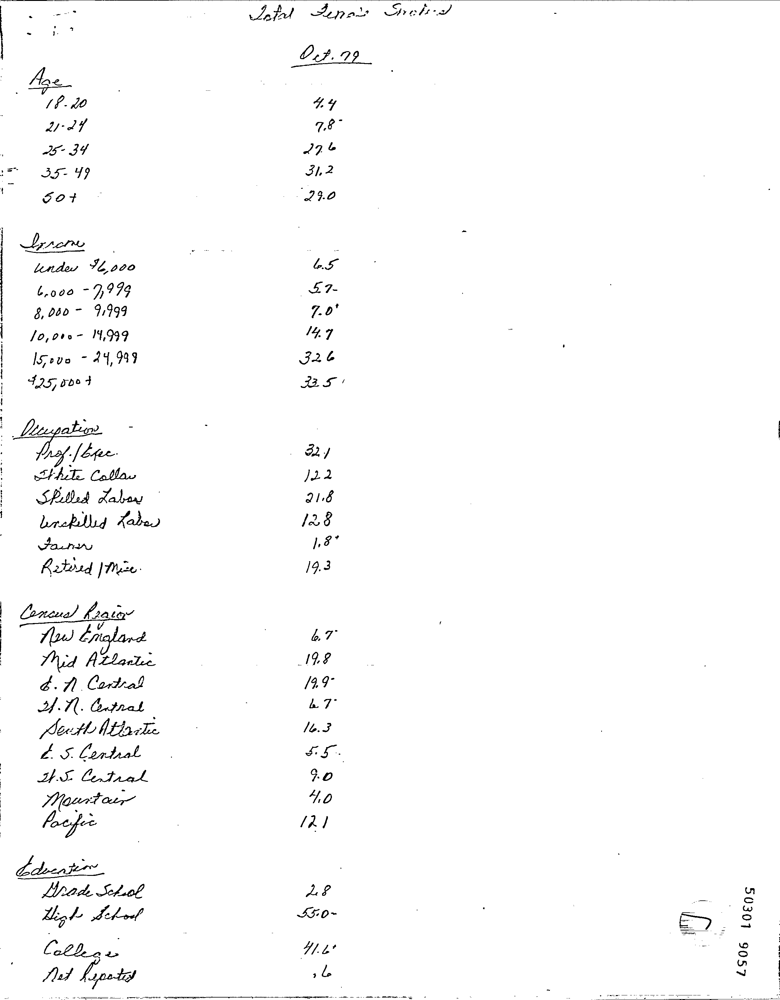 Total
Oct. 79
Age
18-20 4.4
21-24 7.8
25-34 27.6
35-49 31.2
50+ 29.0
Income
Under $6,000 6.5
6,000 - 7,999 5.7
8,000 - 9,999 7.0
10,000 - 14,999 14.7
15,000 - 24,999 32.6
$25,000+ 33.5
Occupation
Prof./Exec. 32.1
White Collar 12.2
Skilled Labor 21.8
Unskilled Labor 12.8
Farmer 1.8
Retired/Misc. 19.3
Census Region
New England 6.7
Mid Atlantic 19.8
E. N. Central 19.9
W. N. Central 6.7
South Atlantic 16.3
E. S. Central 5.5
W. S. Central 9.0
Mountain 4.0
Pacific 12.1
Education
Grade School 2.8
High School 55.0
College 41.6
Not Reported .6
50301 9057